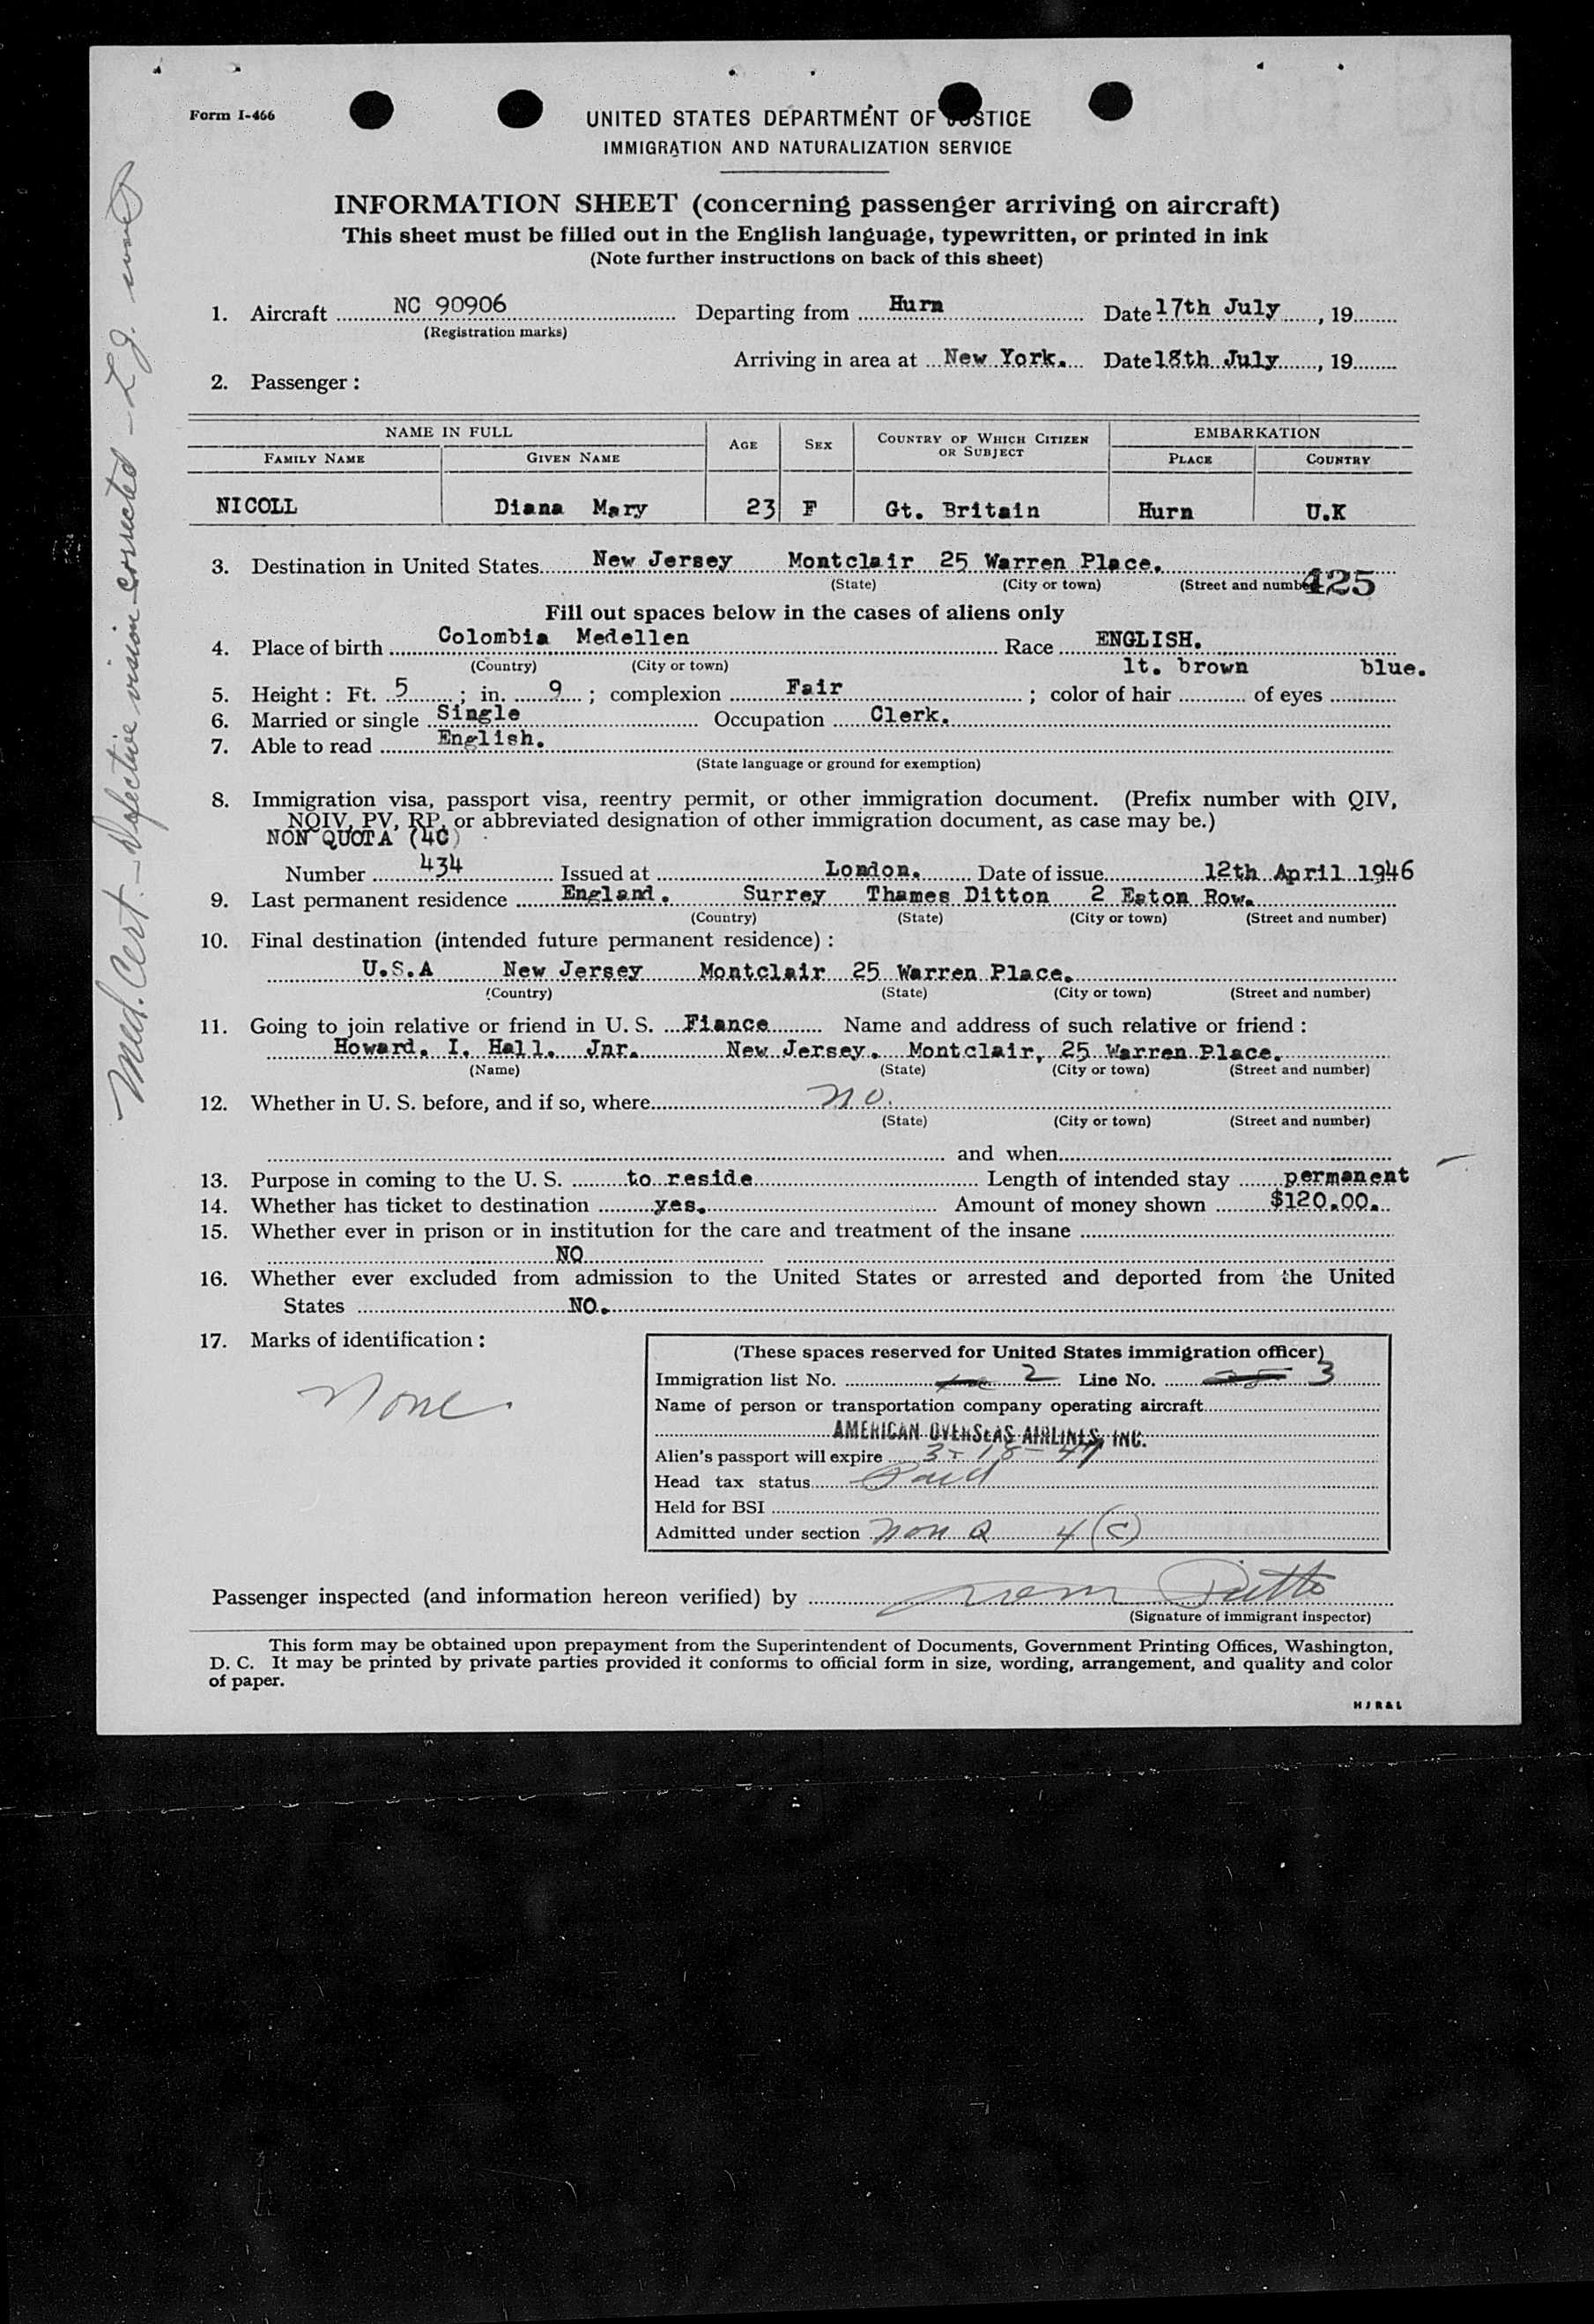 Form I-466
UNITED STATES DEPARTMENT OF JUSTICE
IMMIGRATION AND NATURALIZATION SERVICE
INFORMATION SHEET (concerning passenger arriving on aircraft)
This sheet must be filled out in the English language, typewritten, or printed in ink
(Note further instructions on back of this sheet)
1. Aircraft NC 90906 Departing from Hurn Date 17th July, 19
(Registration marks)
Arriving in area at New York. Date 18th July, 19
2. Passenger:
NAME IN FULL AGE SEX COUNTRY OF WHICH CITIZEN OR SUBJECT EMBARKATION
FAMILY NAME GIVEN NAME PLACE COUNTRY
NICOLL Diana Mary 23 F Gt. Britain Hurn U.K
3. Destination in United States New Jersey Montclair 25 Warren Place.
(State) (City or town) (Street and number) 425
Fill out spaces below in the cases of aliens only
4. Place of birth Colombia Medellen Race ENGLISH.
(Country) (City or town) lt. brown blue.
5. Height: Ft. 5; in. 9; complexion Fair; color of hair of eyes
6. Married or single Single Occupation Clerk.
7. Able to read English.
(State language or ground for exemption)
8. Immigration visa, passport visa, reentry permit, or other immigration document. (Prefix number with QIV,
NQIV, PV, RP, or abbreviated designation of other immigration document, as case may be.)
NON QUOTA (4C)
Number 434 Issued at London. Date of issue 12th April 1946
9. Last permanent residence England. Surrey Thames Ditton 2 Eston Row.
(Country) (State) (City or town) (Street and number)
10. Final destination (intended future permanent residence):
U.S.A New Jersey Montclair 25 Warren Place.
(Country) (State) (City or town) (Street and number)
11. Going to join relative or friend in U. S. Fiance Name and address of such relative or friend:
Howard. I. Hall. Jnr. New Jersey. Montclair, 25 Warren Place.
(Name) (State) (City or town) (Street and number)
12. Whether in U. S. before, and if so, where no.
(State) (City or town) (Street and number)
and when
13. Purpose in coming to the U. S. to reside Length of intended stay permanent
14. Whether has ticket to destination yes. Amount of money shown $120.00.
15. Whether ever in prison or in institution for the care and treatment of the insane
NO
16. Whether ever excluded from admission to the United States or arrested and deported from the United
States NO.
17. Marks of identification:
None.
(These spaces reserved for United States immigration officer)
Immigration list No. 2 Line No. 3
Name of person or transportation company operating aircraft
AMERICAN OVERSEAS AIRLINES, INC.
Alien's passport will expire 3-18-47
Head tax status Paid
Held for BSI
Admitted under section Non Q 4(c)
Passenger inspected (and information hereon verified) by
(Signature of immigrant inspector)
This form may be obtained upon prepayment from the Superintendent of Documents, Government Printing Offices, Washington,
D. C. It may be printed by private parties provided it conforms to official form in size, wording, arrangement, and quality and color
of paper.
HJR&L
Med. Cert. - Defective vision corrected -